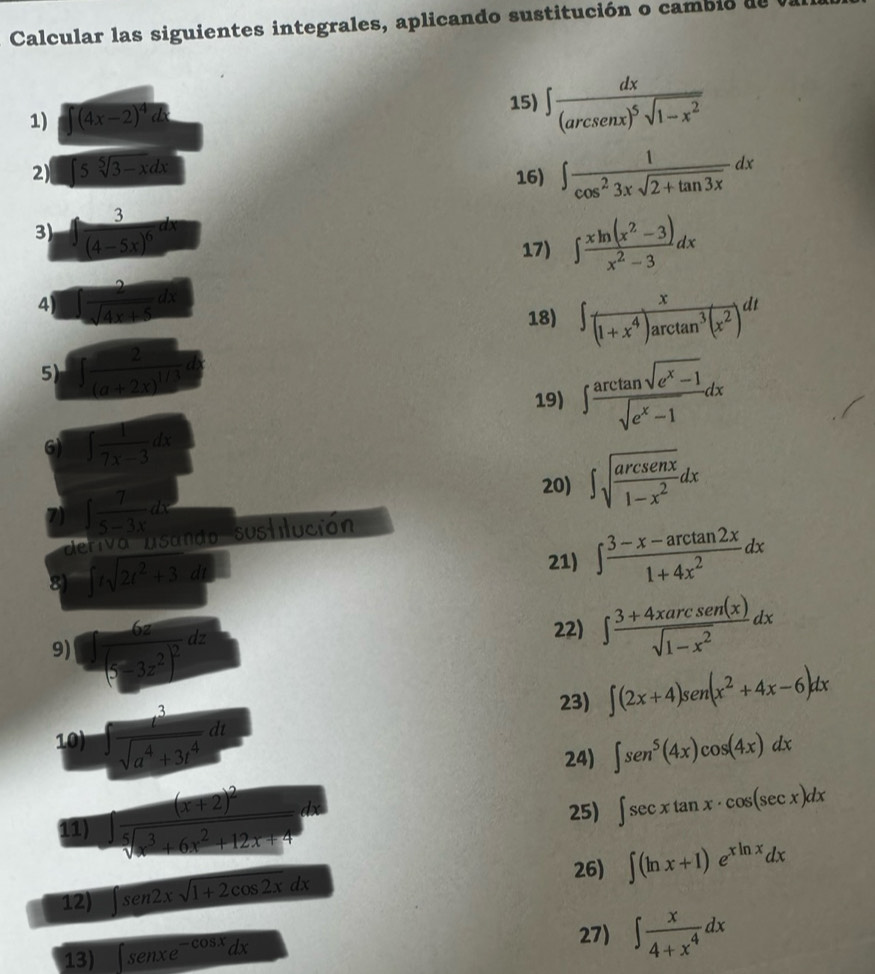 Calcular las siguientes integrales, aplicando sustitución o cambio de
1) ∫(4x−2)⁴ dx
2) ∫5 ⁵√(3−x) dx
3) ∫ 3/(4−5x)⁶ dx
4) ∫ 2/√(4x+5) dx
5) ∫ 2/(a+2x)^(1/3) dx
6) ∫ 1/(7x−3) dx
7) ∫ 7/(5−3x) dx
deriva usando sustitución
8) ∫t√(2t²+3) dt
9) ∫ 6z/(5−3z²)² dz
10) ∫ t³/√(a⁴+3t⁴) dt
11) ∫ (x+2)²/⁵√(x³+6x²+12x+4) dx
12) ∫sen2x √(1+2cos2x) dx
13) ∫senxe^(−cosx) dx
15) ∫ dx/((arcsenx)⁵ √(1−x²))
16) ∫ 1/(cos² 3x √(2+tan3x)) dx
17) ∫ x ln(x²−3)/(x²−3) dx
18) ∫ x/((1+x⁴)arctan³(x²)) dt
19) ∫ arctan√(eˣ−1)/√(eˣ−1) dx
20) ∫ √(arcsenx/(1−x²)) dx
21) ∫ (3−x−arctan2x)/(1+4x²) dx
22) ∫ (3+4xarcsen(x))/√(1−x²) dx
23) ∫(2x+4)sen(x²+4x−6)dx
24) ∫sen⁵(4x)cos(4x) dx
25) ∫sec x tan x·cos(sec x)dx
26) ∫(ln x+1) e^(x ln x) dx
27) ∫ x/(4+x⁴) dx